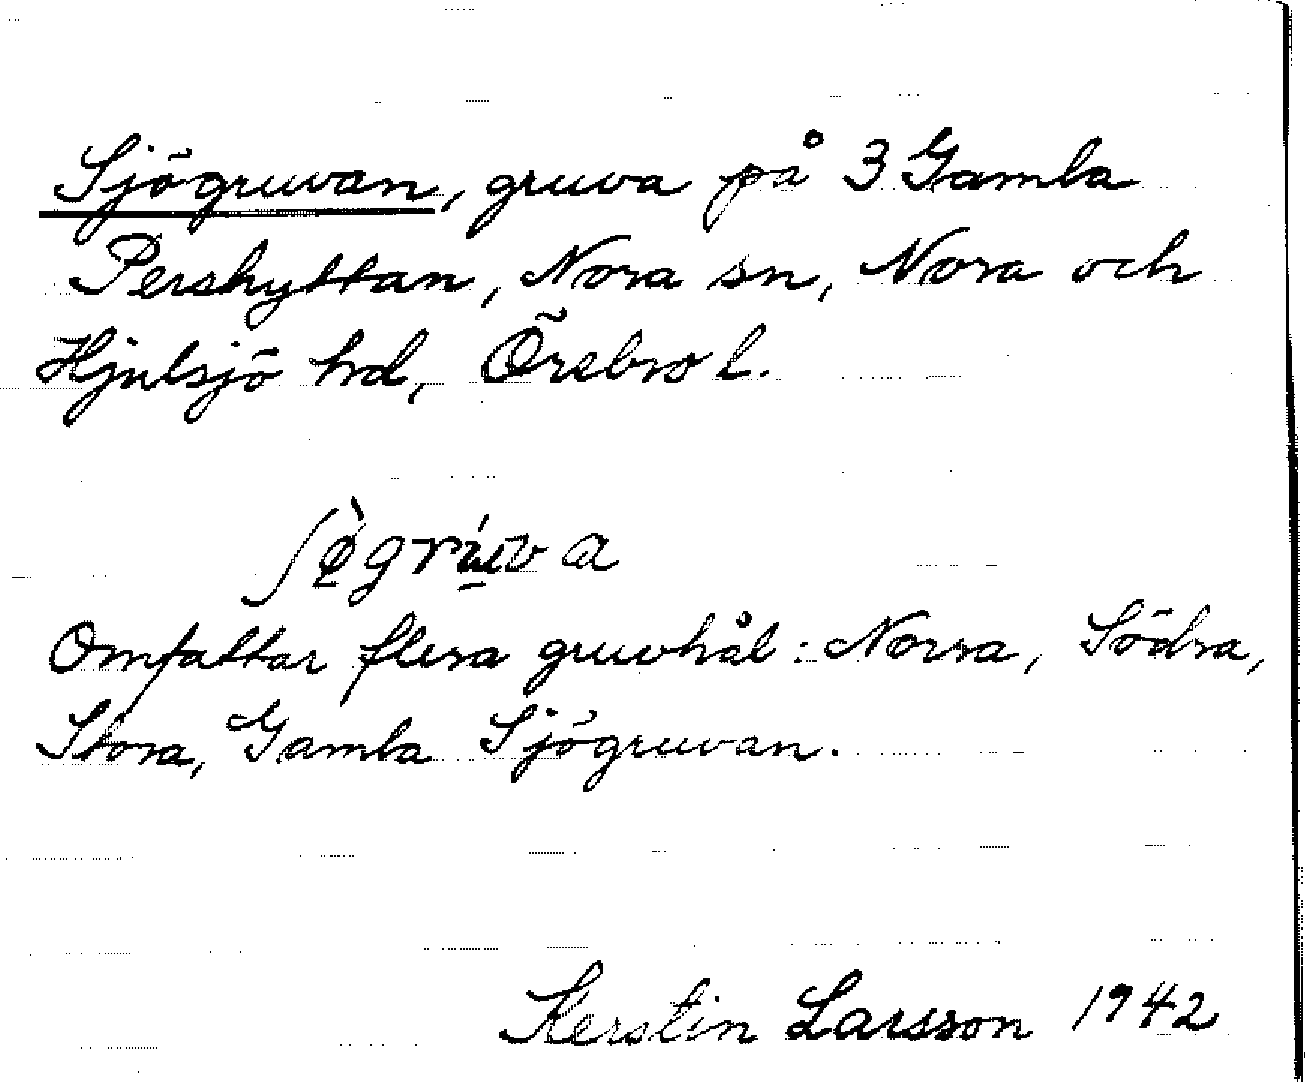 Sjögruvan, gruva på 3 Gamla
Pershyttan, Nora sn, Nora och
Hjulsjö hd, Örebro l.
Omfattar flera gruvhål: Norra, Södra,
Stora, Gamla Sjögruvan.
Kerstin Larsson 1942